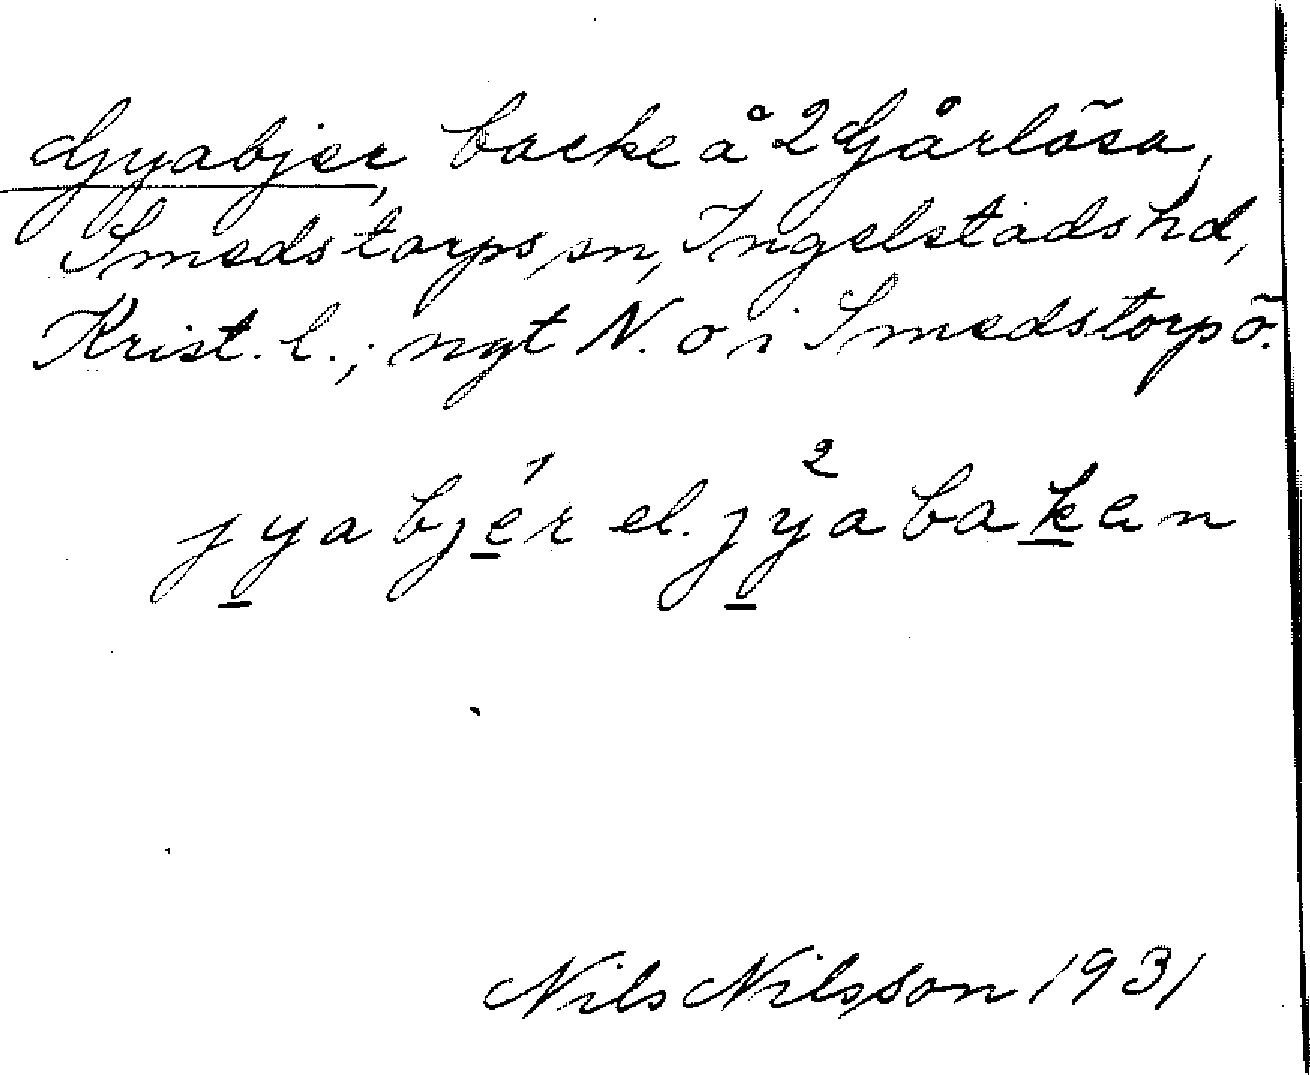 Gyabjer, backe å 2 Gårlösa,
Smedstorps sn, Ingelstads hd,
Krist. l.; ngt N. o i Smedstorp ö.
jyabjér el. jyabaken
Nils Nilsson 1931